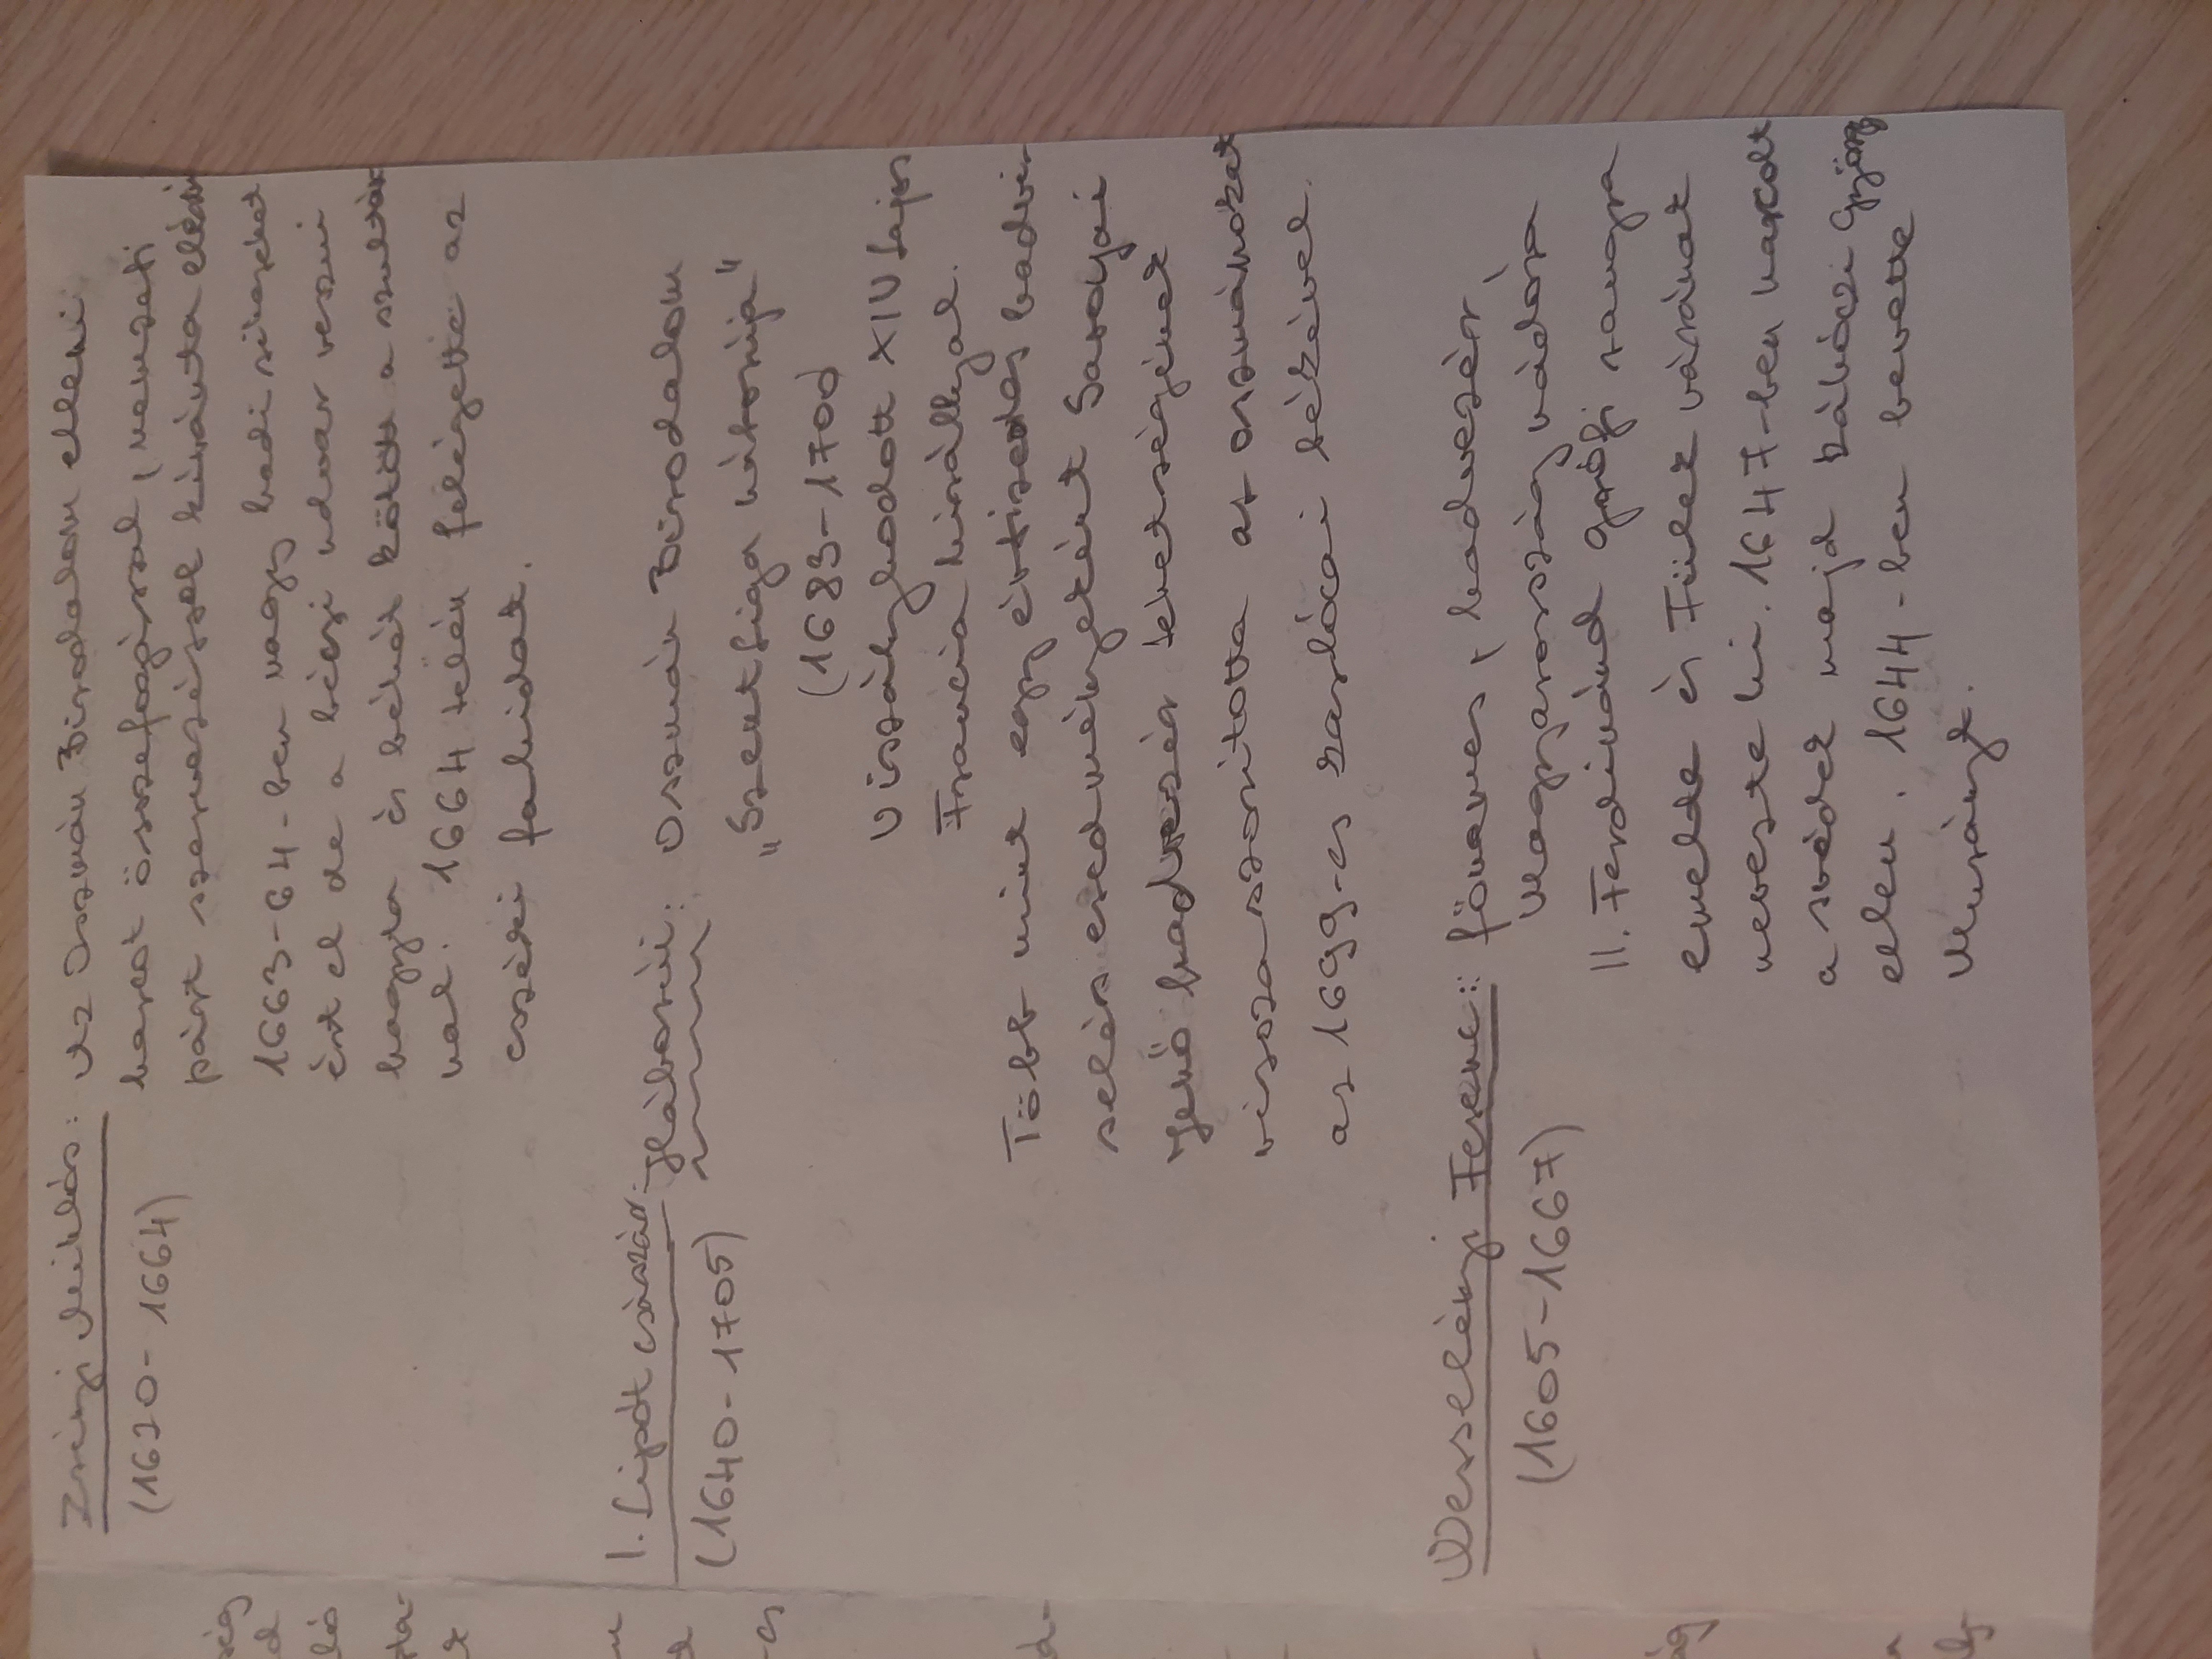 Zrínyi Miklós: Az Oszmán Birodalom elleni
(1620-1664) harcot összefogással, nemzeti
párt szervezéssel kívánta elérni
1663-64-ben nagy hadi sikereket
ért el de a bécsi udvar veszni
hagyta és békét kötött a szultán
nal. 1664 telén felégette az
eszéki fahidat.
I. Lipót császár háborúi: Oszmán Birodalom
(1640-1705) "Szent Liga háborúja"
(1683-1700)
Viszálykodott XIV Lajos
Francia királlyal.
Több mint egy évtizedes hadvi-
selés eredményeként Savoyai
Jenő hadvezér tehetségének
visszaszorította az oszmánokat
az 1699-es karlócai békével.
Wesselényi Ferenc: főnemes, hadvezér,
(1605-1667) Magyarország nádora
II. Ferdinánd grófi rangra
emelte és Fülek várának
nevezte ki. 1647-ben harcolt
a svédek majd Rákóczi György
ellen. 1644-ben bevette
Murányt.
ség
d
ló
-es
d-
ság